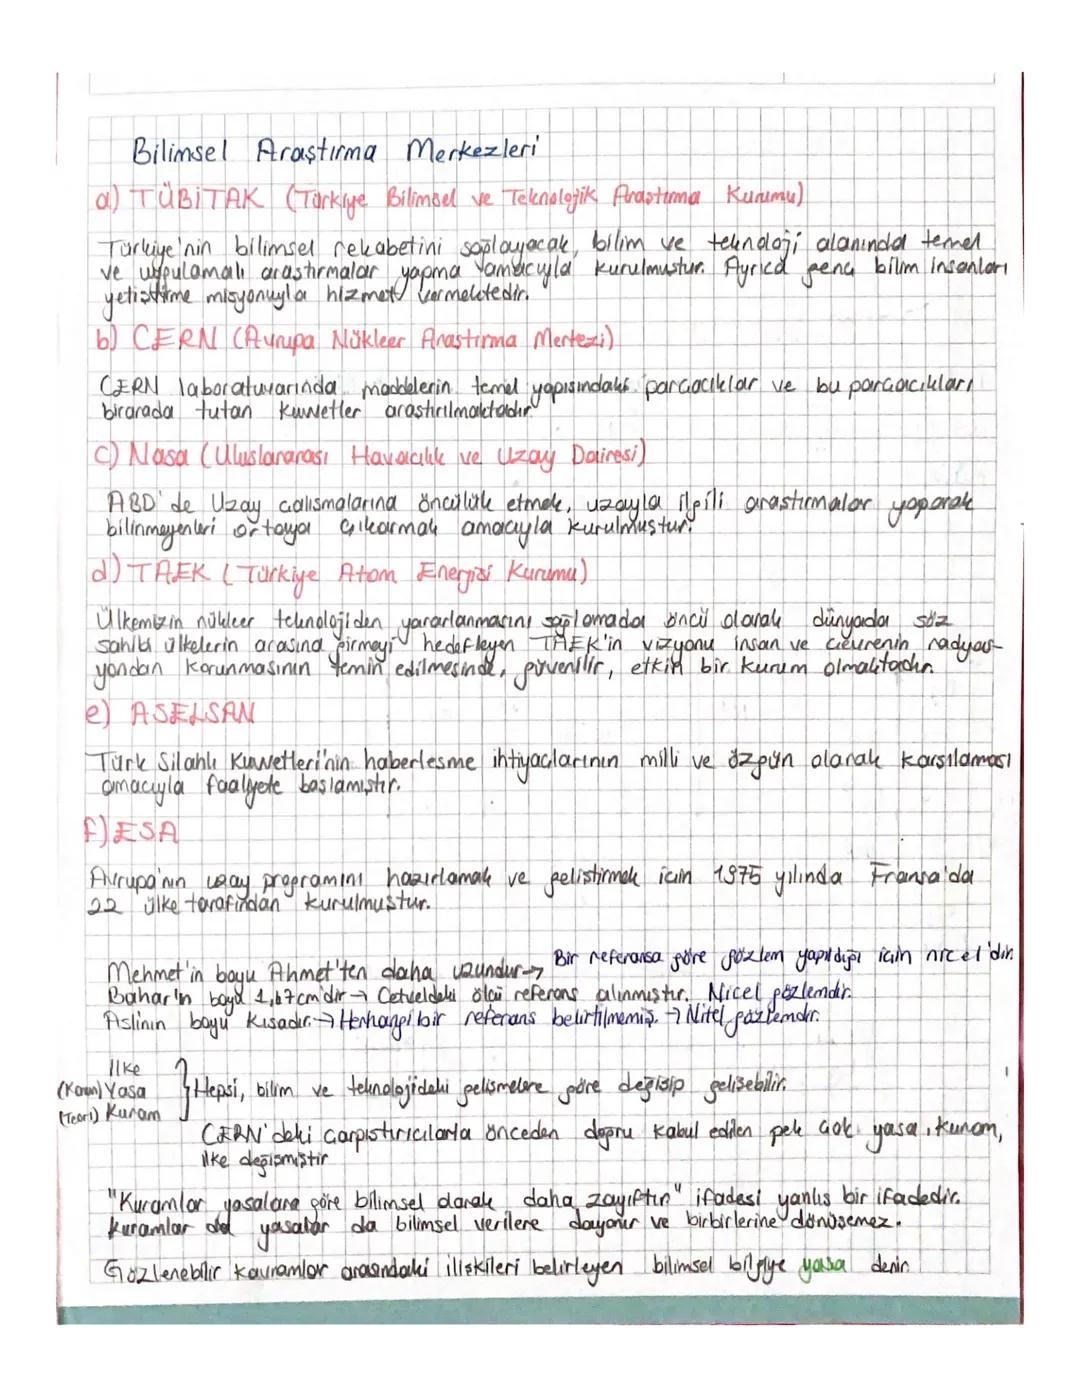 Bilimsel Araştırma Merkezleri
a) TÜBİTAK (Türkiye Bilimsel ve Teknolojik Araştırma Kurumu)
Türkiye'nin bilimsel rekabetini sağlayacak, bilim ve teknoloji alanında temel
ve uygulamalı araştırmalar yapma amacıyla kurulmuştur. Ayrıca genç bilim insanları
yetiştirme misyonuyla hizmet vermektedir.
b) CERN (Avrupa Nükleer Araştırma Merkezi)
CERN laboratuvarında maddelerin temel yapısındaki parçacıklar ve bu parçacıkları
birarada tutan kuvvetler araştırılmaktadır
c) Nasa (Uluslararası Havacılık ve Uzay Dairesi)
ABD'de Uzay çalışmalarına öncülük etmek, uzayla ilgili araştırmalar yaparak
bilinmeyenleri ortaya çıkarmak amacıyla kurulmuştur.
d) TAEK (Türkiye Atom Enerjisi Kurumu)
Ülkemizin nükleer teknolojiden yararlanmasını sağlamada öncü olarak dünyada söz
sahibi ülkelerin arasına girmeyi hedefleyen TAEK'in vizyonu insan ve çevrenin radyas-
yondan korunmasının temin edilmesinde, güvenilir, etkin bir kurum olmaktadır.
e) ASELSAN
Türk Silahlı Kuvvetleri'nin haberleşme ihtiyaçlarının milli ve özgün olarak karşılaması
amacıyla faaliyete başlamıştır.
f) ESA
Avrupa'nın uzay programını hazırlamak ve geliştirmek için 1975 yılında Fransa'da
22 ülke tarafından kurulmuştur.
Mehmet'in boyu Ahmet'ten daha uzundur → Bir referansa göre gözlem yapıldığı için nicel'dir.
Bahar'ın boyu 1,67cm'dir → Cetveldeki ölçü referans alınmıştır. Nicel gözlemdir.
Aslinin boyu kısadır. → Herhangi bir referans belirtilmemiş. → Nitel gözlemdir.
İlke
(Kanun) Yasa } Hepsi, bilim ve teknolojideki gelişmelere göre değişip gelişebilir.
(Teori) Kuram
CERN'deki çarpıştırıcılarla önceden doğru kabul edilen pek çok yasa, kuram,
ilke değişmiştir
"Kuramlar yasalara göre bilimsel olarak daha zayıftır" ifadesi yanlış bir ifadedir.
Kuramlar da yasalar da bilimsel verilere dayanır ve birbirlerine dönüşemez.
Gözlenebilir kavramlar arasındaki ilişkileri belirleyen bilimsel bilgiye yasa denir